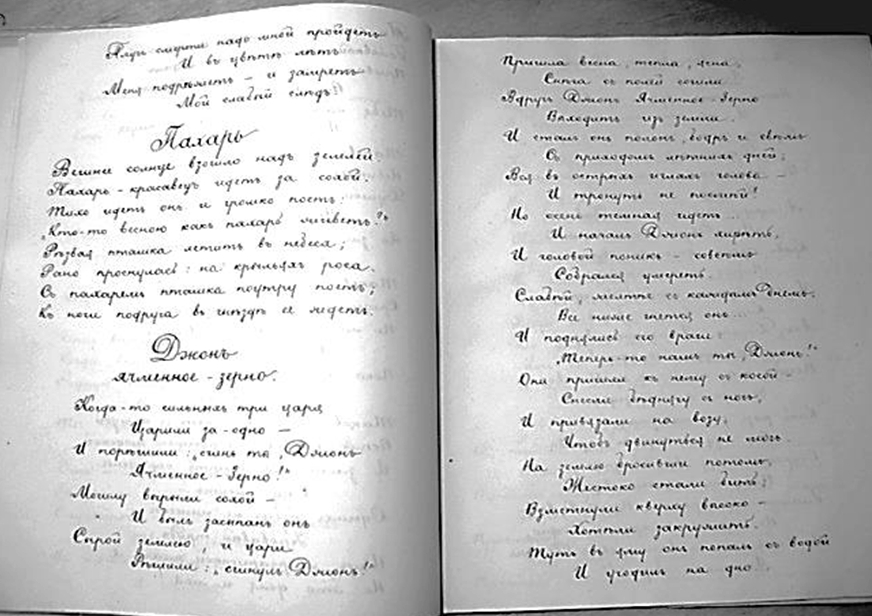 смерти надо мной пройдетъ
И въ цвѣтѣ лѣтъ
Меня подрѣжетъ – и замретъ
Мой слабый слѣдъ.
Пахарь
Вешнее солнце взошло надъ землей
Пахарь-красавецъ идетъ за сохой.
Тихо идетъ онъ и громко поетъ:
„Кто-то весною какъ пахарь живетъ?"
Рѣзвая пташка летитъ въ небеса;
Рано проснулась: на крыльяхъ роса.
Съ пахаремъ пташка поутру поетъ;
Къ ночи подруга въ гнѣздѣ ее ждетъ.
Джонъ
ячменное-зерно.
Когда-то сильныхъ три царя
Царили за-одно –
И порѣшили: „сгинь ты, Джонъ
Ячменное-Зерно!"
Могилу вырыли сохой –
И былъ засыпанъ онъ
Сырой землею, и цари
Рѣшили: „сгинулъ Джонъ!"
Пришла весна, тепла, ясна,
Снѣга съ полей сошли
Вдругъ Джонъ Ячменное-Зерно
Выходитъ изъ земли.
И сталъ онъ полонъ, бодръ и свѣжъ
Съ приходомъ лѣтнихъ дней;
Вся въ острыхъ иглахъ голова –
И тронуть не посмѣй!
Но осень темная идетъ...
И началъ Джонъ хирѣть,
И головой поникъ – совсѣмъ
Собрался умереть.
Слабѣй, желтѣе съ каждымъ днемъ,
Все ниже гнется онъ...
И поднялись его враги:
„Теперь-то нашъ ты, Джонъ!"
Они пришли къ нему съ косой –
Снесли бѣднягу съ ногъ,
И привязали на возу,
Чтобъ двинуться не могъ.
На землю бросивши потомъ,
Жестоко стали бить;
Взметнули кверху высоко –
Хотѣли закружить.
Тутъ въ яму онъ попалъ съ водой
И угодилъ на дно...